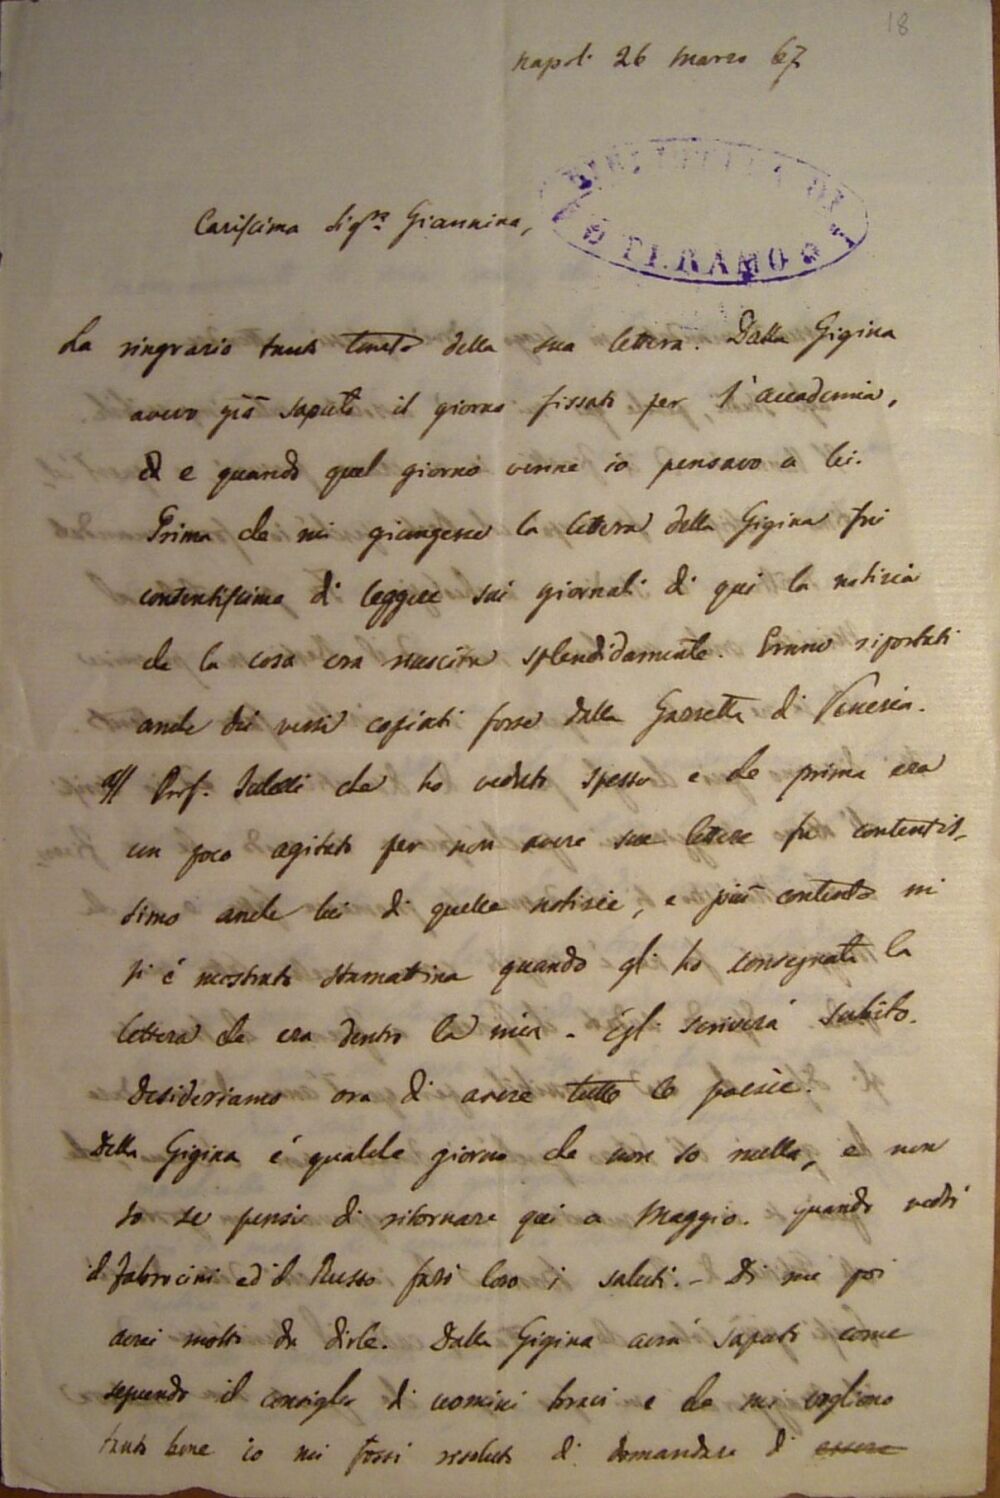 18
Napoli 26 Marzo 67
BIBLIOTECA DI
TERAMO
Carissima Sigra Giannina,
La ringrazio tanto tanto della sua lettera. Dalla Gigina
avevo già saputo il giorno fissato per l'accademia,
e quando quel giorno venne io pensavo a lei.
Prima che mi giungesse la lettera della Gigina fui
contentissimo di leggere sui giornali di qui la notizia
che la cosa era riuscita splendidamente. Erano riportati
anche dei versi copiati forse dalla Gazzetta di Venezia.
Il Prof. che ho veduto spesso e che prima era
un poco agitato per non avere sue lettere fu contentis-
simo anche lui di quelle notizie, e più contento mi
si è mostrato stamattina quando gli ho consegnata la
lettera che era dentro la mia. Egli scriverà subito.
Desideriamo ora di avere tutte le poesie.
Della Gigina è qualche giorno che non so nulla, e non
so se pensi di ritornare qui a Maggio. Quando vedrò
il Fabrocini ed il Russo farò loro i saluti. - Di me poi
avrei molto da dirle. Dalla Gigina avrà saputo come
seguendo il consiglio di uomini bravi e che mi vogliono
tanto bene io mi fossi risoluto di domandare di essere